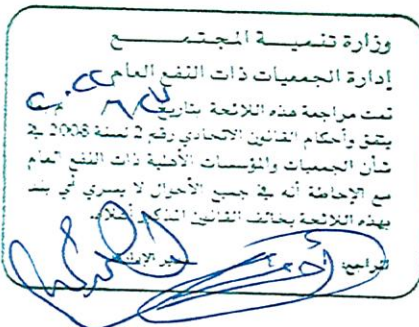 وزارة تنميـــة المجتمـــــــع
إدارة الجمعيات ذات النفع العام
تمت مراجعة هذه اللائحة بتاريخ
يتفق وأحكام القانون الاتحادي رقم 2 لسنة 2008 في
شأن الجمعيات والمؤسسات الأهلية ذات النفع العام
مع الإحاطة أنه في جميع الأحوال لا يسري أي بند
بهذه اللائحة يخالف القانون المذكور أعلاه.
المراجع: مدير الإدارة